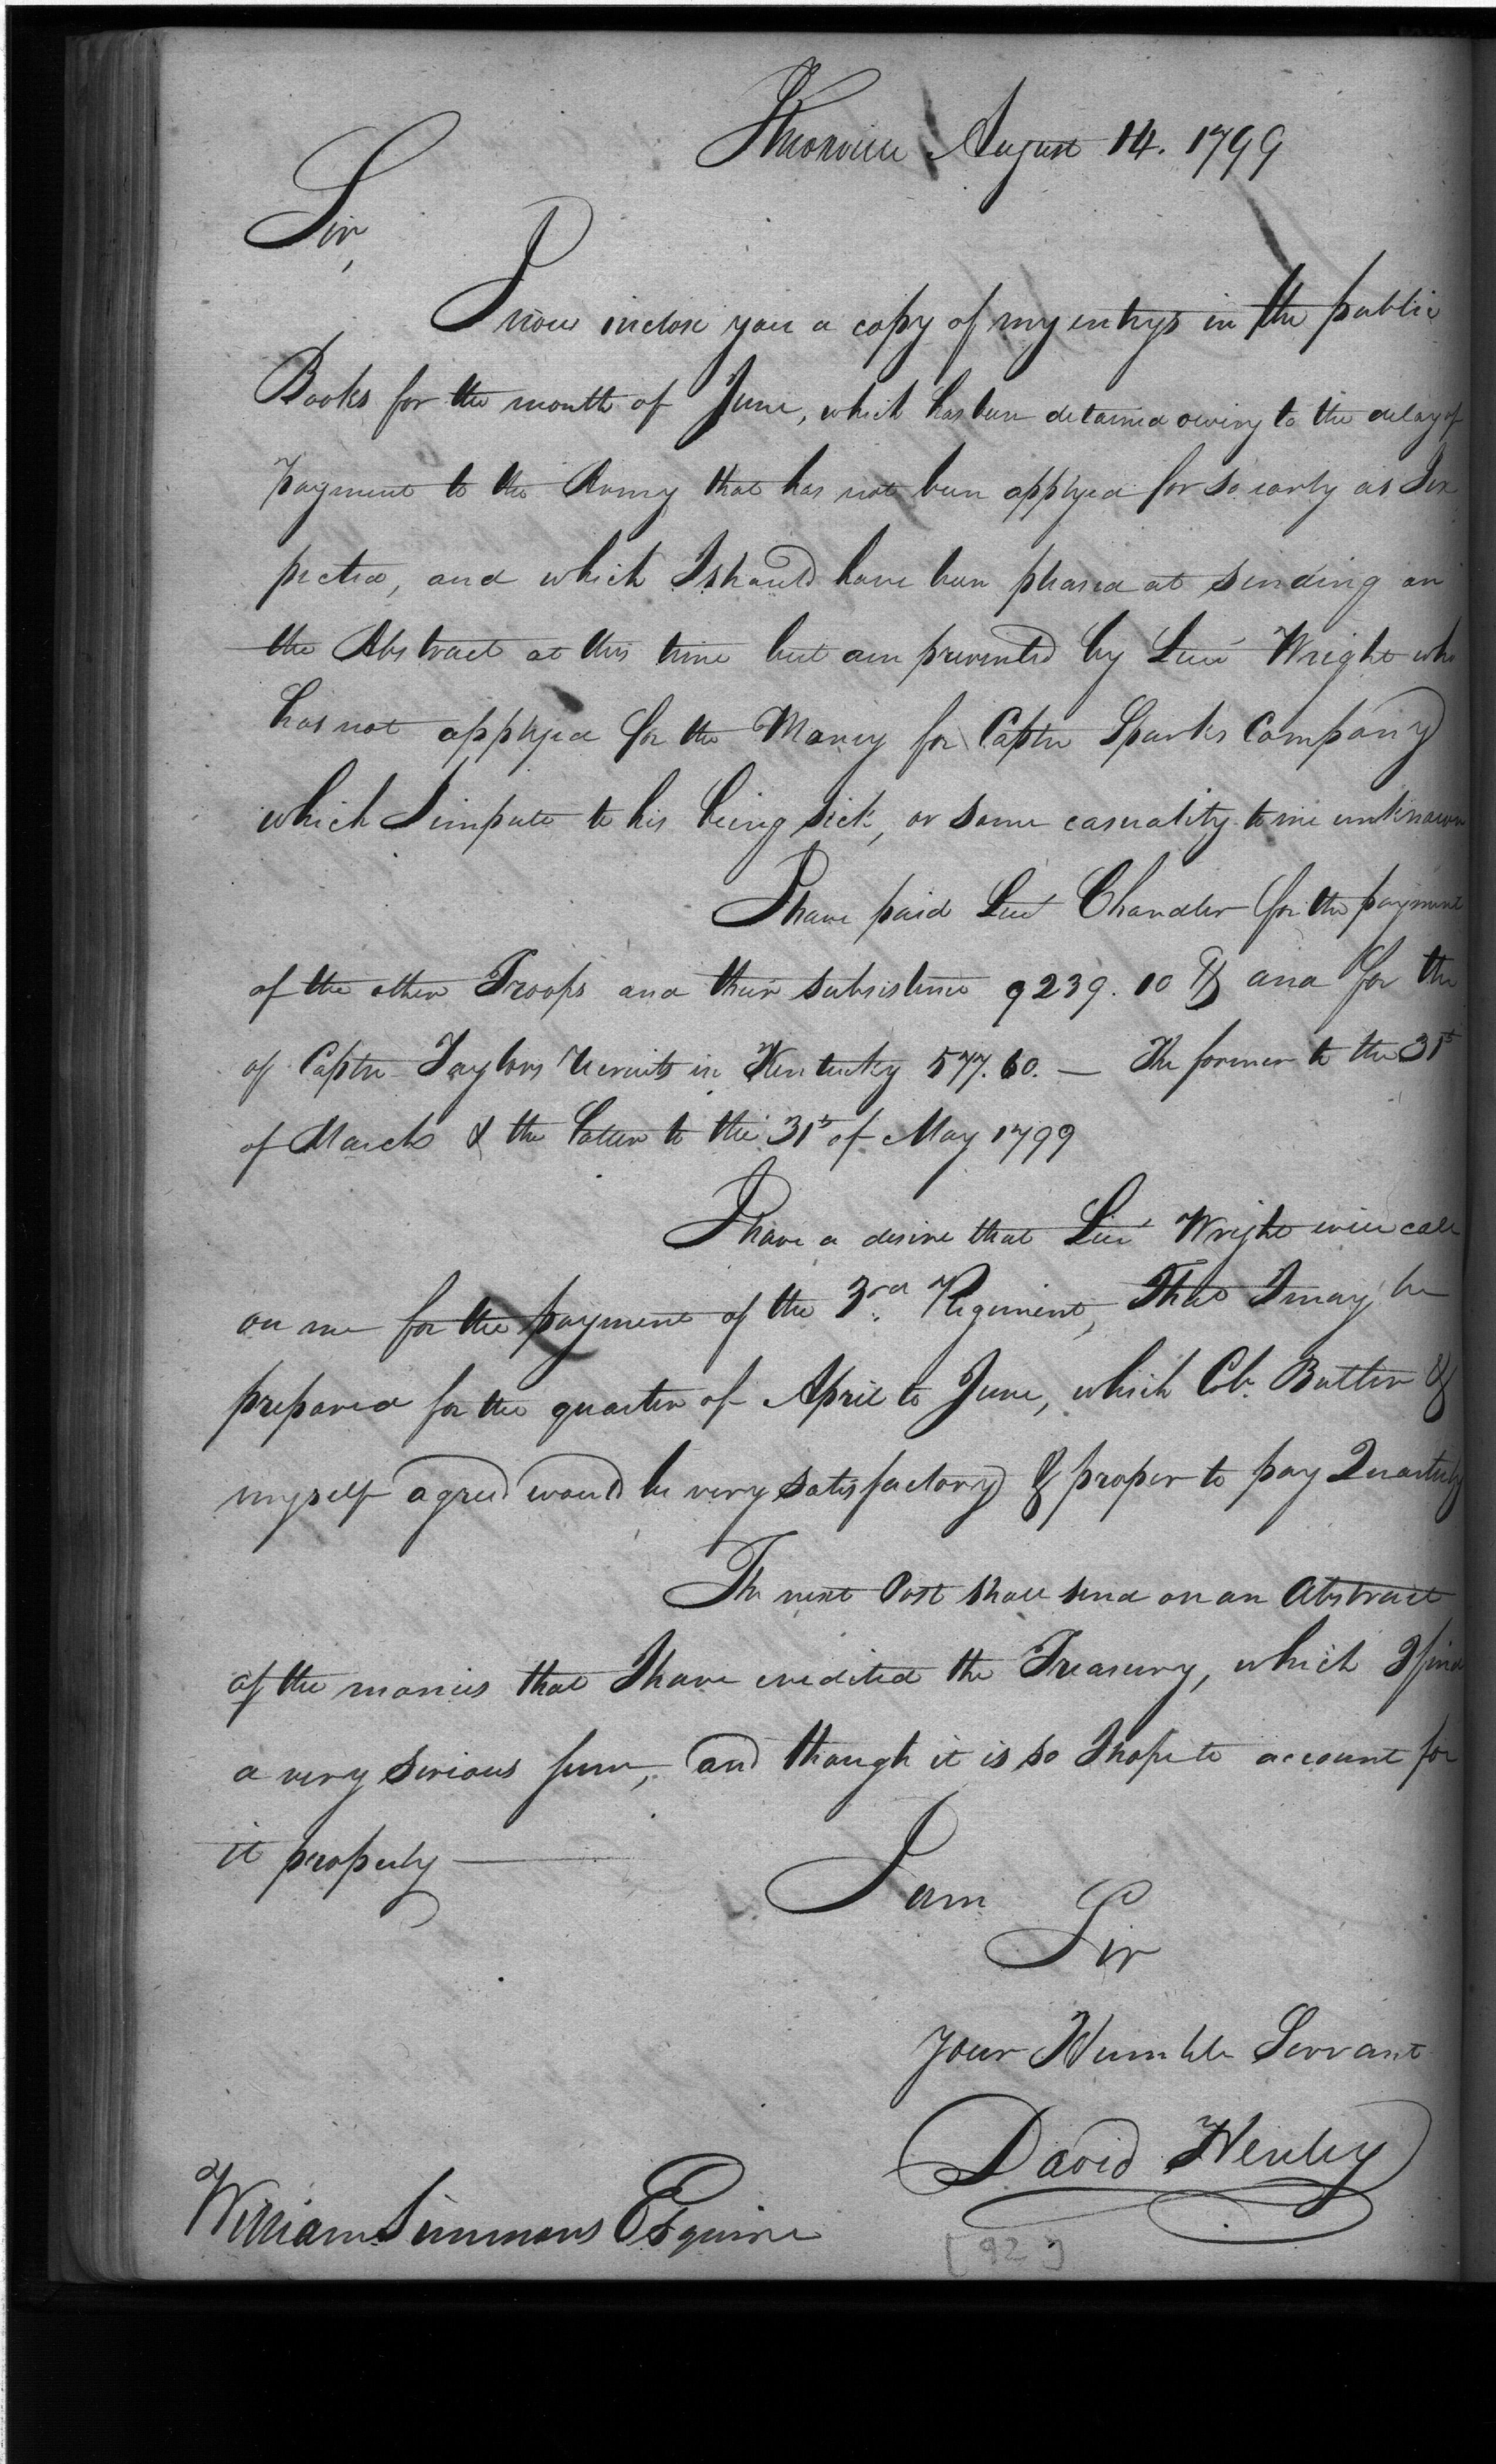 Knoxville August 14. 1799
Sir,
I now inclose you a copy of my entrys in the public
Books for the month of June, which has been detained owing to the delay of
payment to the Army that has not been applyed for so early as I ex
pected, and which I should have been pleased at sending on
the Abstract at this time but am prevented by Lieut Wright who
has not applyed for the Money for Captn Sparks Company
which I impute to his being sick, or some casuality to me unknown
I have paid Lieut Chandler for the payment
of the other Troops and their subsistence 9239. 10 and for the
of Captn Taylors recruits in Kentucky 577. 60. — The former to the 31st
of March & the latter to the 31st of May 1799
I have a desire that Lieut Wright will call
on me for the payment of the 3rd Regiment, That I may be
prepared for the quarter of April to June, which Col. Butler &
myself agreed would be very satisfactory & proper to pay Quarterly
The next Post shall send on an Abstract
of the monies that I have credited the Treasury, which I find
a very serious sum, and though it is so I hope to account for
it properly —
I am
Sir
your Humble Servant
David Henley
William Simmons Esquire
[92]